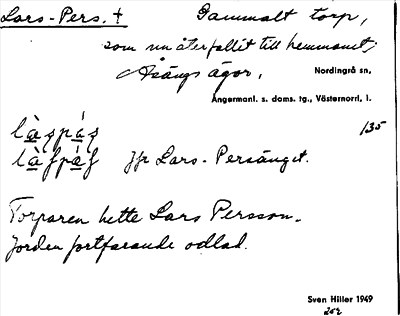 Lars-Pers. † Gammalt torp,
som nu återfallit till hemmanet,
Åsängs ägor.
Nordingrå sn,
Ångermanl. s. doms. tg., Västernorrl. l.
135
làspás
làfpáf jfr Lars-Persänget.
Torparen hette Lars Persson.
Jorden fortfarande odlad.
Sven Hiller 1949